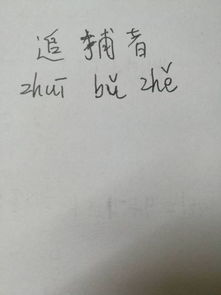 追辅者
zhuī bǔ zhě